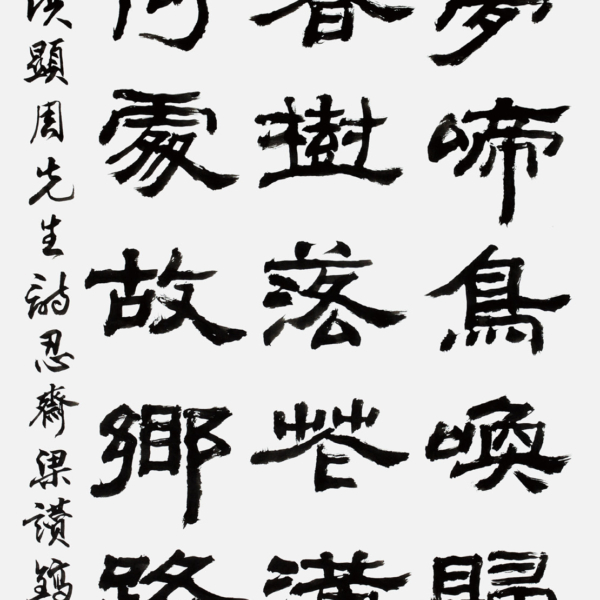 夢啼鳥喚歸
春樹落花滿
何處故鄉路
顯周先生詩忍齋梁讚